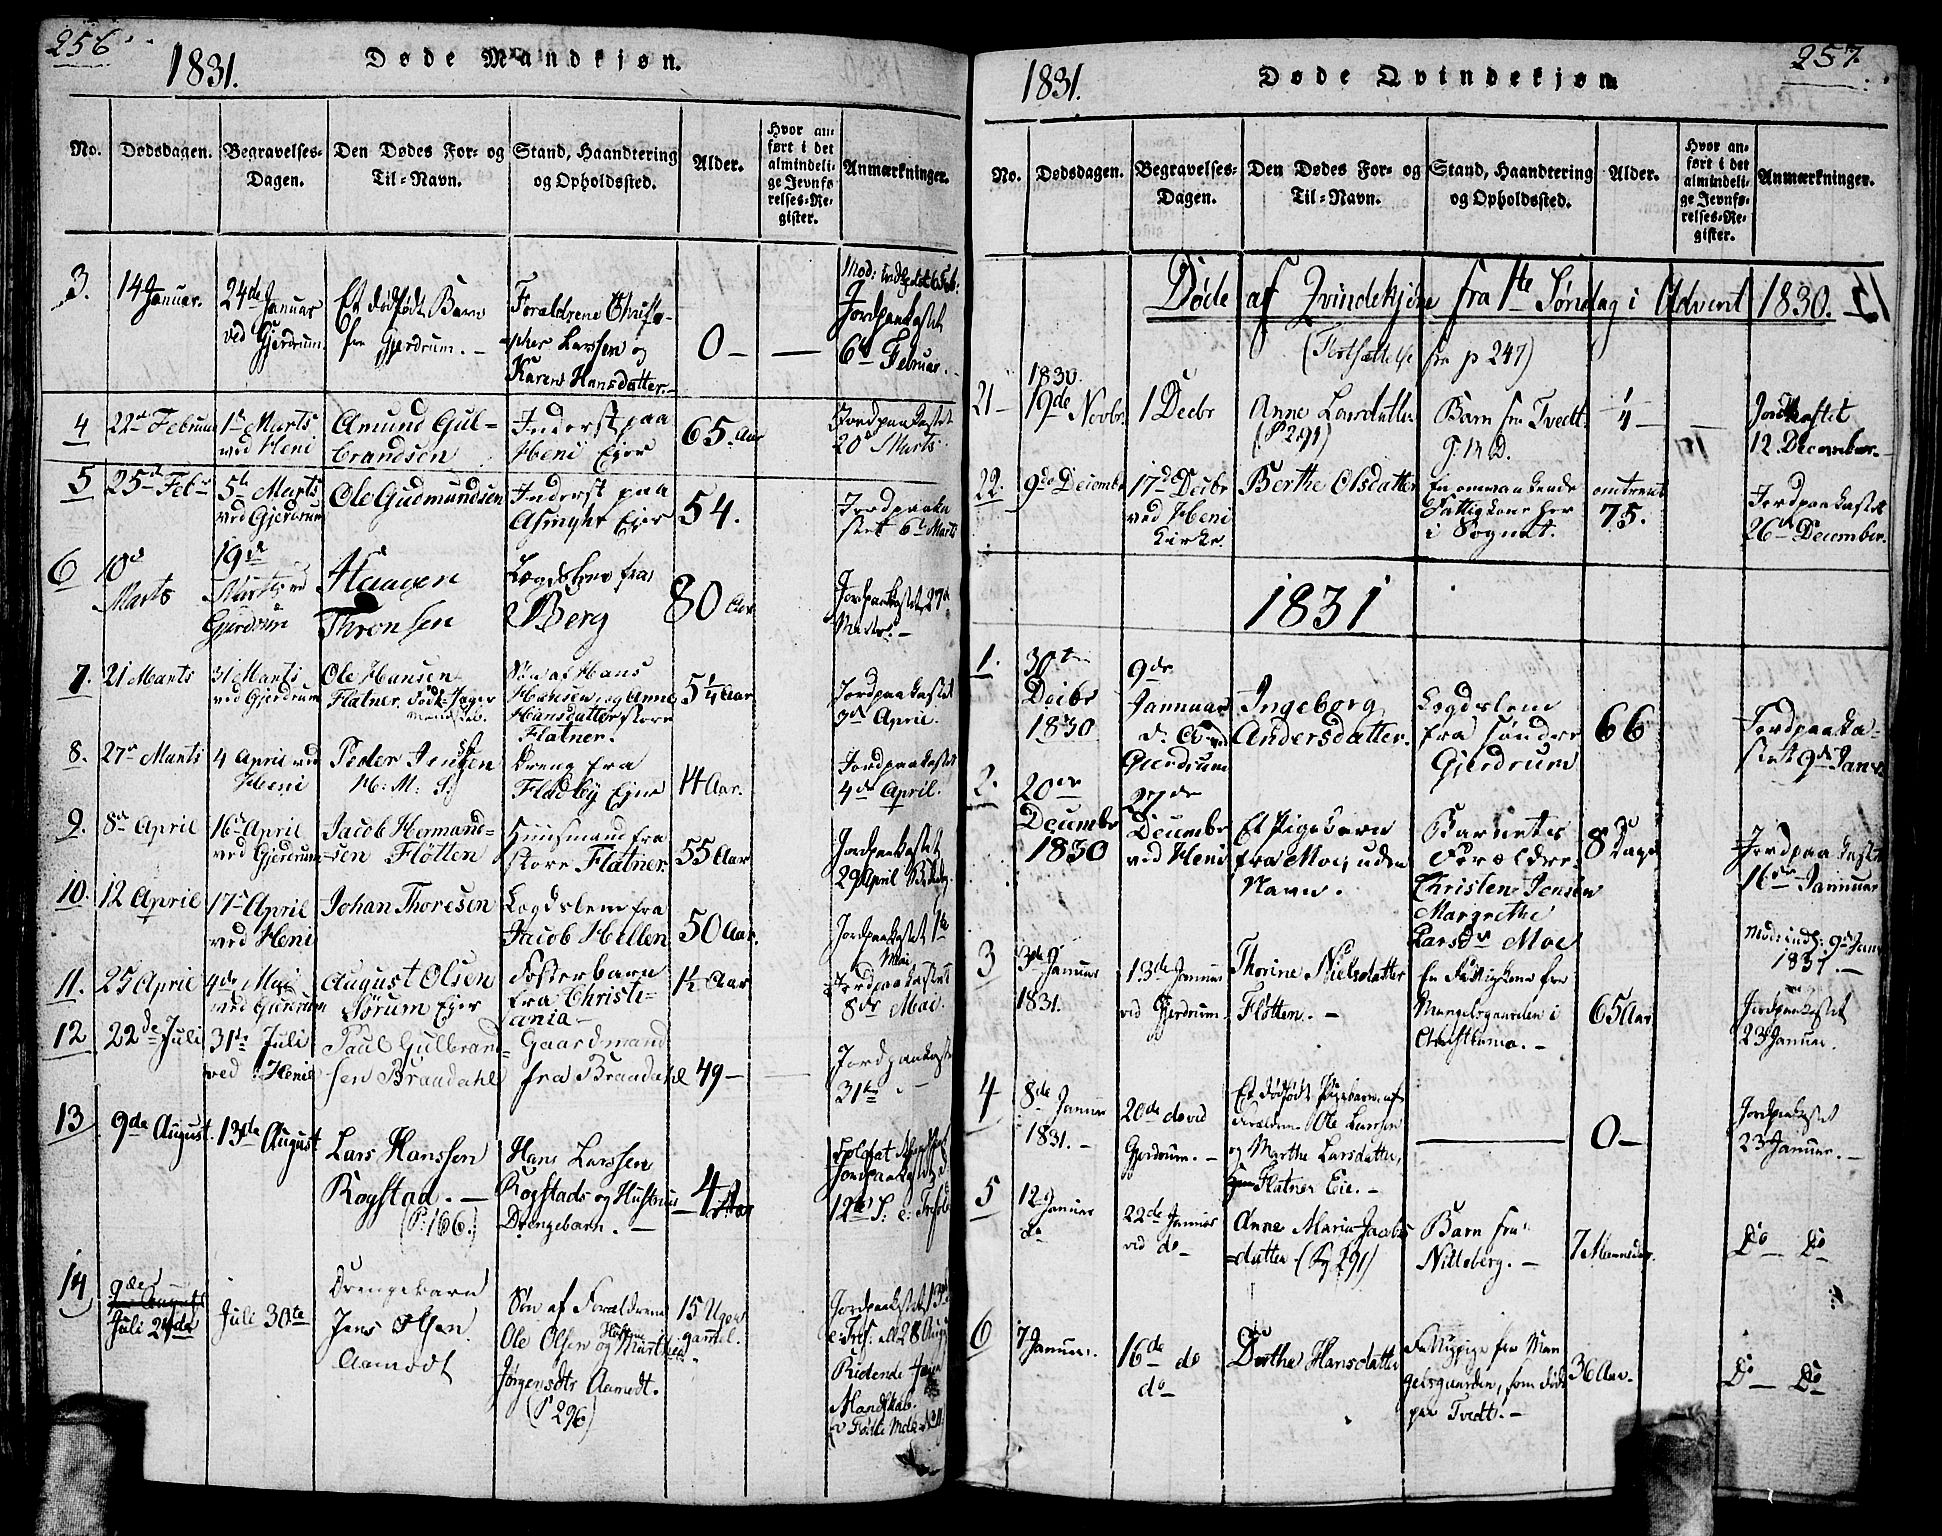 256
1831.
Døde Mandkjøn.
No.
Dødsdagen.
Begravelses-
Dagen.
Den Dødes For- og
Til-Navn.
Stand, Haandtering
og Opholdssted.
Alder.
Hvor an-
ført i det
almindeli-
ge Jevnfø
relses-Re-
gister.
Anmærkninger.
3.
14 Januar.
24de Januar
ved Gjerdrum
Et dødfødt Barn
fra Gjerdrum. -
Forældrene Christo-
pher Larsen og
Karen Hansdatter. -
0 -
Jordpaakastet
6te Februar.
4
22de Februar
1ste Marts
ved Heni
Amund Gul-
brandsen
Inderst paa
Heni Ejer
65. Aar
Jordpaakastet
20de Marts.
5
25de Febr
5te Marts
ved Gjerdrum
Ole Gudmundsen
Inderst paa
Ejer
54.
Jordpaaka
stet 6te Marts
6
10de
Marts
19de
Marts ved
Gjerdrum
Haagen
Thronsen
Legdslem fra
Berg
80 Aar
Jordpaakastet 27de
Marts. -
7.
21 Marts
31 Marts
ved Gjerdrum
Ole Hansen
Flatner
Søn af Hans
Hansen og Anne
Hansdatter store
Flatner.
5 1/4 Aar
Jordpaakastet
April.
8.
27de Marts
4 April ved
Heni
Peder Jensen
H: M: S:
Dreng fra
Fladby Ejer
14 Aar.
Jordpaakastet
4de April.
9.
8de April
16de April
ved Gjerdrum
Jacob Hermand-
sen Fløtten
Huusmand fra
store Flatner
55 Aar
Jordpaakastet
29 April
10.
12 April
17de April
ved Heni
Johan Thoresen
Legdslem fra
Jacob Hellen
50 Aar.
Jordpaakastet 1ste
Mai
11.
25 April
4de Mai
ved Gjerdrum
August Olsen
Sørum Ejer
Fosterbarn
fra Christi-
ania -
1 1/2 Aar
Jordpaakastet
8de Mai.
12
22de Juli
31te Juli
ved Heni
Paul Gulbrand-
sen Braadahl
Gaardmand
fra Braadahl
49 -
Jordpaakast
31te -
13
9de August
13de August
Lars Hanssen
Rogstad. -
(P. 166.)
Hans Larssen
Rogstads og Hustrues
Drengebarn. -
4 Aar
Jordpaakastet
14
9de
Juli 24de
Juli 30te
Drengebarn
Jens Olsen
Aamodt
Søn af Forældrene
Ole Olsen og Hustrue Marthe
Jørgensdtr Aamodt.
(P 296)
15 Uger
gammel.
Jordpaakastet 13
Ridende
Mandskab.
257.
1831.
Døde Qvindekjøn
No.
Dødsdagen.
Begravelses-
Dagen.
Den Dødes For- og
Til-Navn.
Stand, Haandtering
og Opholdssted.
Alder.
Hvor an-
ført i det
almindeli-
ge Jevnfø-
relses-Re-
gister.
Anmærkninger.
Døde af Qvindekjøn fra 1te Søndag i Advent 1830.
(Fortsættelse fra p 247)
21 -
1830.
19de Novbr.
1 Decbr
Anne Larsdatter
(P 291)
Barn fra Tvedt
1/4
Jordkastet
12. December. -
22.
9de Decembr
17de Decbr
ved Heni
Kirke.
Berthe Olsdatter
En omvankende
Fattigkone her
i Sognet.
omtrent
75.
Jordpaakastet
26de December.
1831
1.
30te
Decbr
1830
9de
Januar
Gjerdrum
Ingeborg
Andersdatter.
Legdslem
fra søndre
Gjerdrum
66
Jordpaaka-
stet 9de Januar
2.
20de
Decembr
1830
27de
Decembr
ved Heni
Et Pigebarn
fra Moe, uden
Navn.
Barnets
Forældre.
Christen Jensen
Margrethe
Larsdtr Moe
8 Dage
Jordpaakastet
16de Januar
3
3de Januar
1831.
13de Januar
ved Gjerdrum.
Thorine Nielsdatter
Fløtten. -
En Fattigkone fra
Mangelsgaarden i
Christiania. -
65 Aar
Jordpaakastet
23 Januar.
4
8de Januar
1831. -
20de do ved
Gjerdrum. -
Et dødfødt Pigebarn af
Forældrene Ole Larssen
og Marthe Larsdatter,
Flatner Eie. -
0 -
Jordpaakastet
23 Januar. -
5
12 Januar
do
22de Januar
ved do -
Anne Maria Jacobs
=datter (P. 291)
Barn fra
Nilleberg. -
7 Maaneder.
Do - Do
6
7 Januar.
16de do
do -
Dorthe Hansdatter
Fattigpige fra Man
gelsgaarden, som døde
paa Tvedt. -
36 Aar -
Do - Do